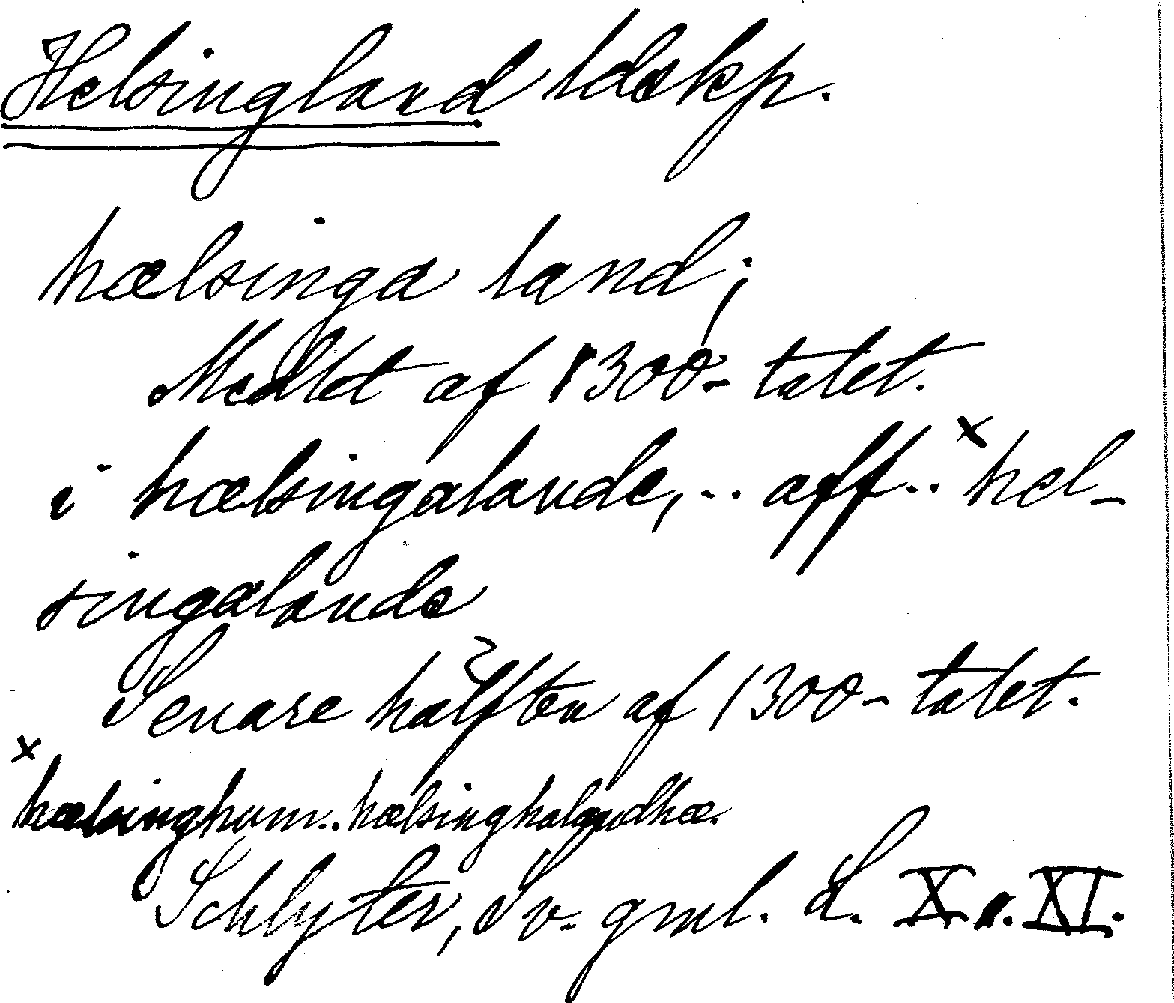 Helsingland ldskp.
hælsinga land;
Medlet af 1300-talet.
i hælsingalande, .. aff .. × hel-
singalande
Senare hälften af 1300-talet.
× hælsinghum .. hælsinghalandhæ.
Schlyter, Sv. gml. L. X. o. XI.